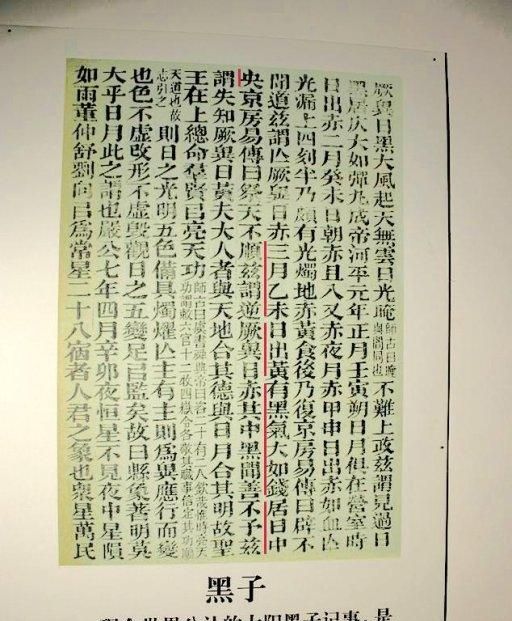 厥異日黑大風起天無雲日光晻師古曰晻與闇同也不難上政茲謂見過日
黑居仄大如彈丸成帝河平元年正月壬寅朔日月俱在營室時
日出赤二月癸未日朝赤且入又赤夜月赤甲申日出赤如血亡
光漏上四刻半乃頗有光燭地赤黃食後乃復京房易傳曰辟不
聞道茲謂亡厥異日赤三月乙未日出黃有黑氣大如錢居日中
央京房易傳曰祭天不順茲謂逆厥異日赤其中黑聞善不予茲
謂失知厥異日黃夫大人者與天地合其德與日月合其明故聖
王在上總命羣賢㠯亮天功師古曰虞書舜典帝曰咨二十有二人欽哉惟時亮天功謂敕六官十二牧四嶽令各敬其職事信定其功順
天道也故志引之則日之光明五色備具燭燿亡主有主則為異應行而變
也色不虛改形不虛毀觀日之五變足㠯監矣故曰縣象著明莫
大乎日月此之謂也嚴公七年四月辛卯夜恒星不見夜中星隕
如雨董仲舒劉向㠯為常星二十八宿者人君之象也眾星萬民
黑子